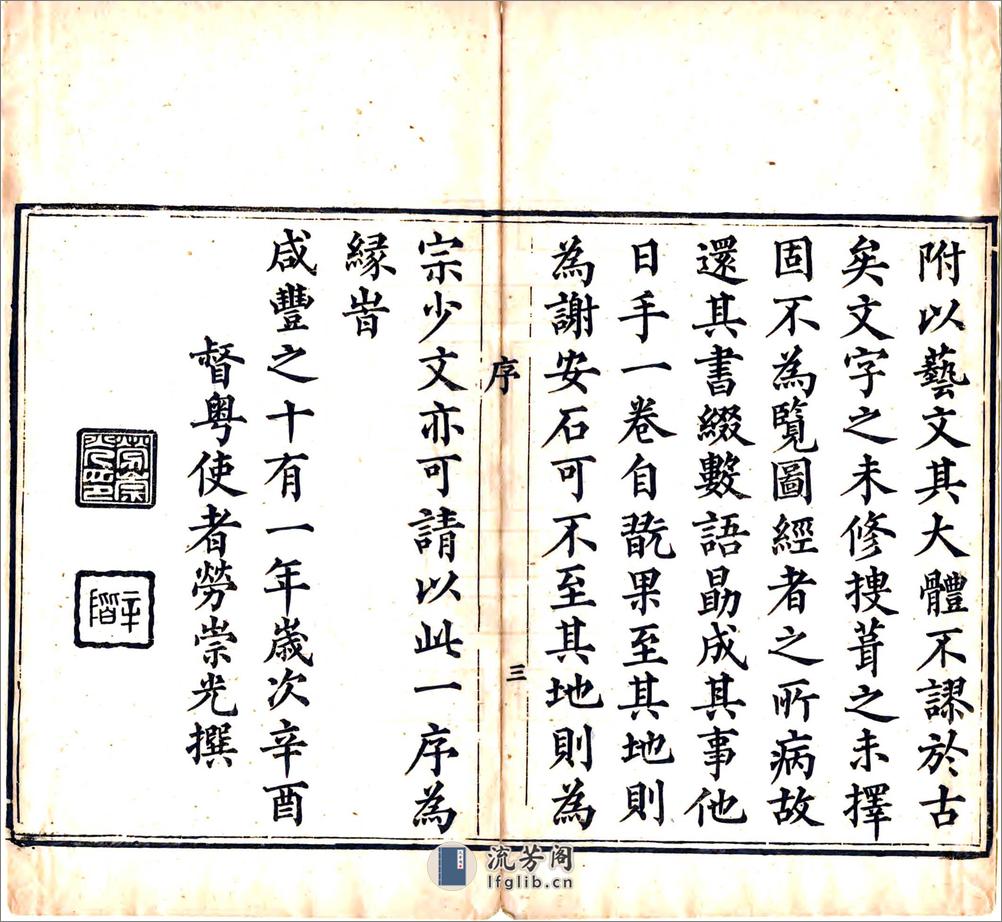 附以藝文其大體不謬於古
矣文字之未修搜葺之未擇
固不為覽圖經者之所病故
還其書綴數語勗成其事他
日手一卷自翫果至其地則
為謝安石可不至其地則為
序
三
宗少文亦可請以此一序為
緣耑
咸豐之十有一年歲次辛酉
督粵使者勞崇光撰
勞崇光印
辛階
流芳阁
lfglib.cn